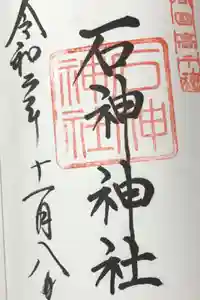 石神神社
石神
神社
令和二年十一月八日